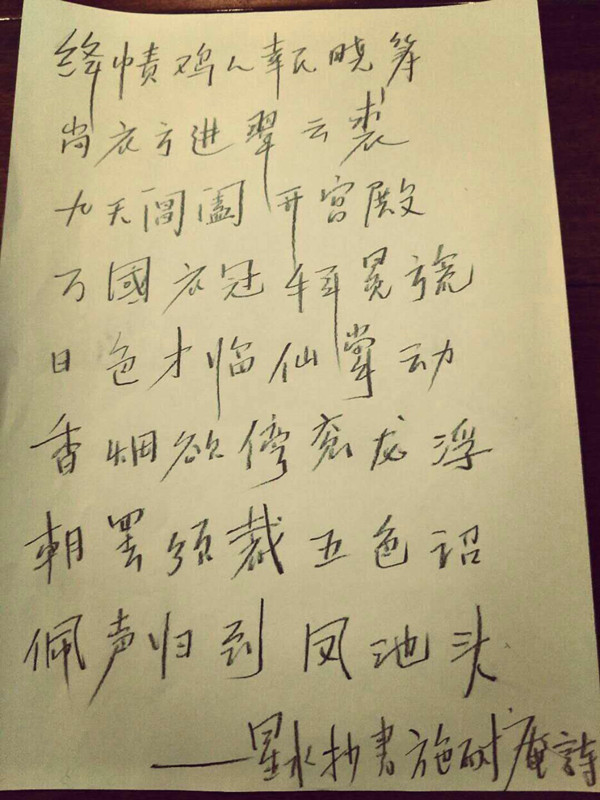 绛帻鸡人報晓筹
尚衣方进翠云裘
九天阊阖开宫殿
万國衣冠拜冕旒
日色才临仙掌动
香烟欲傍衮龙浮
朝罢须裁五色诏
佩声归到凤池头
——星水抄書施耐庵詩